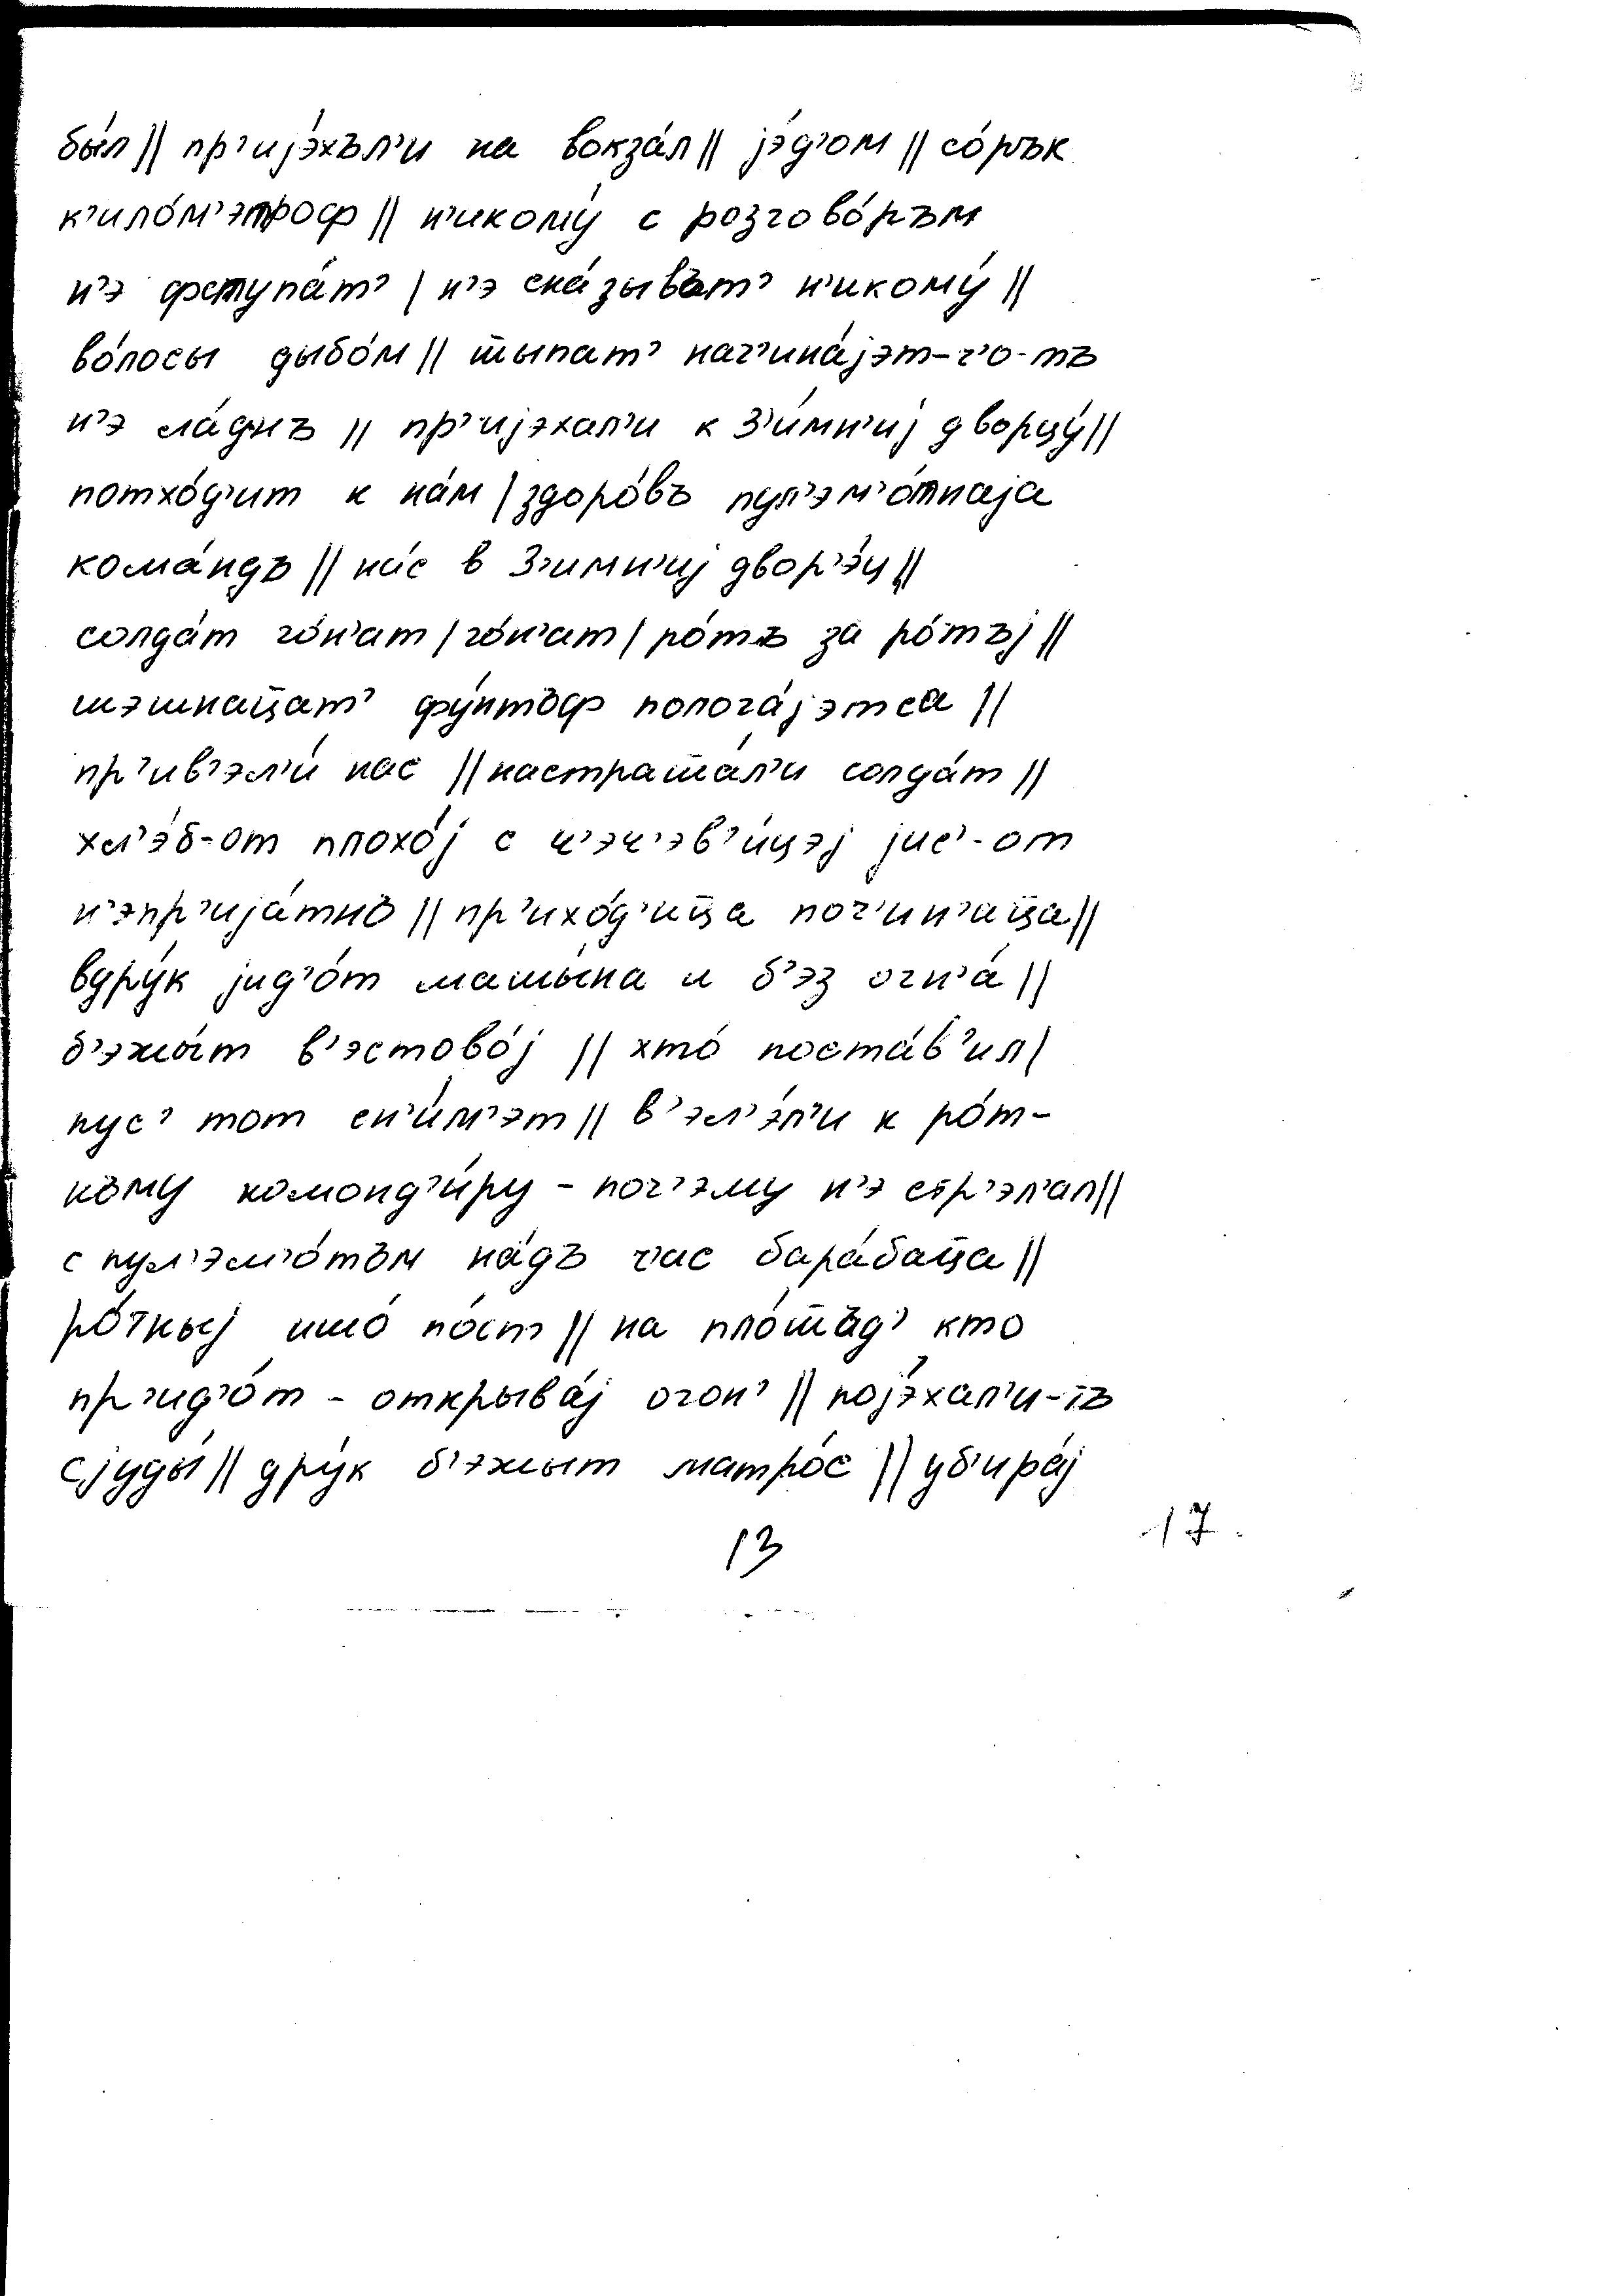 бы́л || пр’ијэ́хъл’и на вокза́л || јэ́д’ом || со́рък
к’ило́м’этроф || н’икому́ с розгово́ръм
н’э фступа́т’ | н’э ска́зывът’ н’икому́ ||
во́лосы дыбо́м ||ш̅ыпат’ нач’ина́јэт-ч’о-тъ
н’э ла́днъ || пр’ијэхал’и к З’и́мн’иј дворцу́ ||
потхо́д’ит к на́м | здоро́въ пул’эм’о́тнаја
кома́ндъ || на́с в З’имн’иј двор’э́ц ||
солда́т го́н’ат | го́н’ат | ро́тъ за ро́тъј ||
шэшнац̅ат’ фу́нтъф полога́јэтса ||
пр’ив’эл’и́ нас || настраш̅а́л’и солда́т ||
хл’э́б-от плохо́ј с ч’эч’эв’и́цэј јис’-от
н’эпр’ија́тнъ || пр’ихо́д’иц̅а поч’ин’ац̅а ||
вдру́к јид’о́т машы́на и б’эз огн’а́ ||
б’эжы́т в’эстово́ј || хто́ поста́в’ил |
пус’ тот сн’и́м’эт || в’эл’э́л’и к ро́т-
ному команд’и́ру - поч’эму н’э стр’эл’ал ||
с пул’эм’о́тъм на́дъ ч’ас бара́бац̅а ||
ро́тныј ишо́ по́ст || на пло́ш̅ъд’ кто
пр’ид’о́т - открыва́ј огон’ || појэ́хал’и-тъ
сјуды́ || дру́к б’эжыт матро́с || уб’ира́ј
13
17.